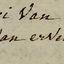 i Van
an erve